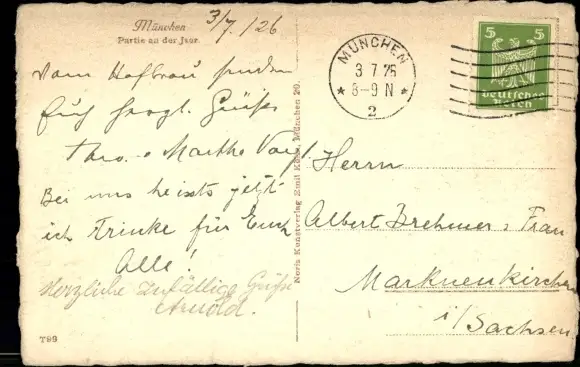 München
Partie an der Jsar.
3/7. 26
Vom Hofbräu senden
Euch herzl. Grüße
Theo. Martha
Bei uns heissts jetzt
ich Trinke für Euch
Alle!
Herzliche zufällige Grüße
Arnold.
T99
Noris Kunstverlag Emil München 29.
MÜNCHEN
3 7 26
8-9 N
2
5 5
Deutsches
Reich
Herrn
Albert Brehmer, Frau
Markneukirchen
i/Sachsen